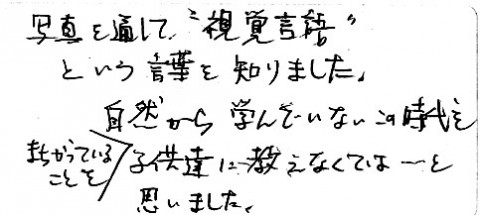 写真を通して、"視覚言語"
という言葉を知りました。
自然から学んでいないこの時代を
まちがっている
ことを
子供達に教えなくては…と
思いました。